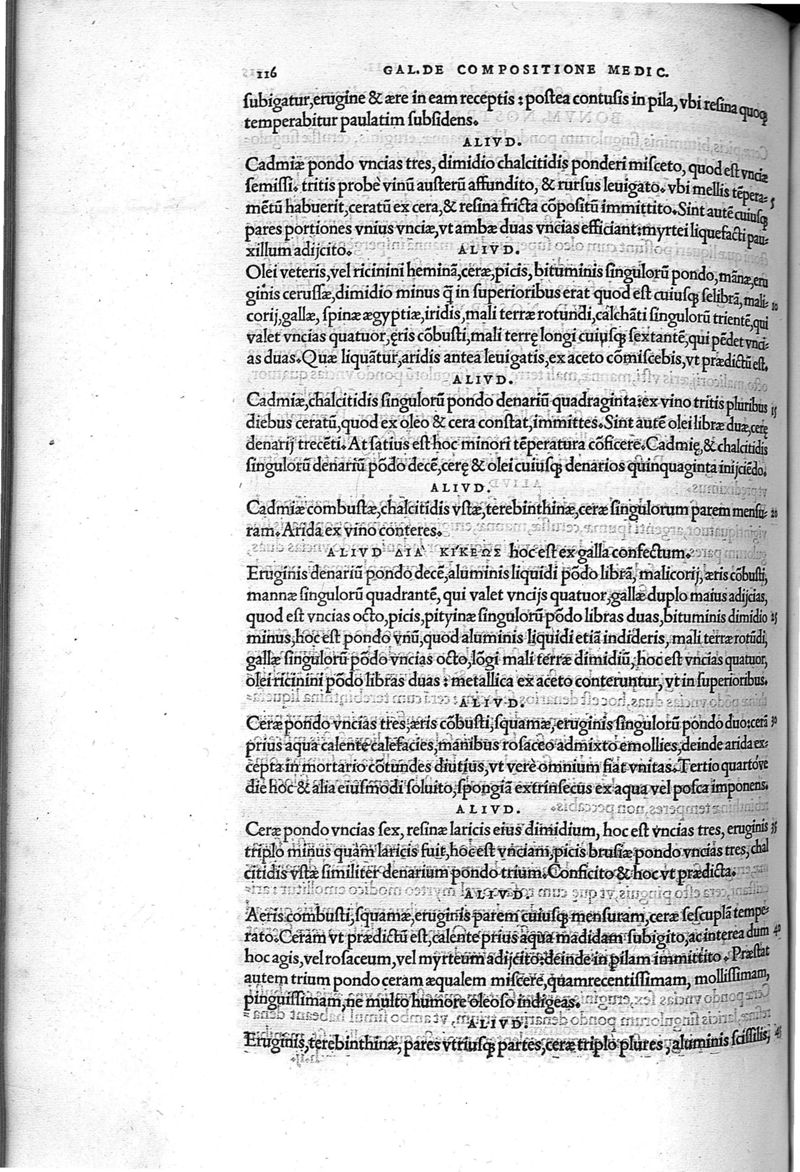 116 GAL.DE COMPOSITIONE MEDIC.
ſubigatur,erugine & ære in eam receptis : poſtea contuſis in pila, vbi reſina quoqꝫ
temperabitur paulatim ſubſidens.
ALIVD.
Cadmiæ pondo vncias tres, dimidio chalcitidis ponderi miſceto, quod eſt vnciæ
ſemiſſi. tritis probè vinū auſterū affundito, & rurſus leuigato. vbi mellis tēpera= 5
mētū habuerit,ceratū ex cera,& reſina fricta cōpoſitū immittito. Sint autē cuiuſqꝫ
pares portiones vnius vnciæ,vt ambæ duas vncias efficiant:myrtei liquefacti pau=
xillum adijcito. ALIVD.
Olei veteris,vel ricinini heminā,ceræ,picis, bituminis ſingulorū pondo,mānæ,eru
ginis ceruſſæ,dimidio minus q̄ in ſuperioribus erat quod eſt cuiuſqꝫ ſelibrā, mali= 10
corij,gallæ, ſpinæ ægyptiæ,iridis,mali terræ rotundi,calchāti ſingulorū trientē,qui
valet vncias quatuor,ęris cōbuſti,mali terrę longi cuiuſqꝫ ſextantē,qui pēdet vnci=
as duas. Quæ liquātur,aridis antea leuigatis,ex aceto cōmiſcebis,vt prædictū eſt.
ALIVD.
Cadmiæ,chalcitidis ſingulorū pondo denariū quadraginta:ex vino tritis pluribus 15
diebus ceratū,quod ex oleo & cera conſtat,immittes. Sint autē olei libræ duæ,cerę
denarij trecēti. At ſatius eſt hoc minori tēperatura cōficere. Cadmię,& chalcitidis
ſingulorū denariū pōdo decē,cerę & olei cuiuſqꝫ denarios quinquaginta inijciēdo.
ALIVD.
Cadmiæ combuſtæ,chalcitidis vſtæ,terebinthinæ,ceræ ſingulorum parem menſu= 20
ram. Arida ex vino conteres.
ALIVD ΔΙΑ ΚΙΚΕΩΣ hoc eſt ex galla confectum.
Eruginis denariū pondo decē,aluminis liquidi pōdo librā, malicorij,æris cōbuſti,
mannæ ſingulorū quadrantē, qui valet vncijs quatuor,gallæ duplo maius adijcias,
quod eſt vncias octo,picis,pityinæ ſingulorū pōdo libras duas,bituminis dimidio 25
minus,hoc eſt pondo vnū,quod aluminis liquidi etiā indideris, mali terræ rotūdi,
gallæ ſingulorū pōdo vncias octo,lōgi mali terræ dimidiū,hoc eſt vncias quatuor,
olei ricinini pōdo libras duas : metallica ex aceto conteruntur, vt in ſuperioribus.
ALIVD.
Ceræ pondo vncias tres,æris cōbuſti,ſquamæ,eruginis ſingulorū pondo duo:cerā 30
prius aqua calente calefacies,manibus roſaceo admixto emollies,deinde arida ex=
cepta in mortario cōtundes diutius,vt verè omnium fiat vnitas. Tertio quartóve
die hoc & alia eiuſmodi ſoluito,ſpongiā extrinſecus ex aqua vel poſca imponens.
ALIVD.
Ceræ pondo vncias ſex, reſinæ laricis eius dimidium, hoc eſt vncias tres, eruginis 35
triplo minus quàm laricis fuit,hoc eſt vnciam,picis bruſiæ pondo vncias tres,chal
citidis vſtæ ſimiliter denarium pondo trium. Conficito & hoc vt prædicta.
ALIVD.
Aeris combuſti,ſquamæ,eruginis parem cuiuſqꝫ menſuram, ceræ ſeſcuplā tempe=
rato. Ceram vt prædictū eſt,calente prius aqua madidam ſubigito,ac interea dum 40
hoc agis, vel roſaceum,vel myrteum adijcito:deinde in pilam immittito . Præſtat
autem trium pondo ceram æqualem miſcere,quamrecentiſſimam, molliſſimam,
pinguiſſimam,ne multo humore oleoſo indigeas.
ALIVD.
Eruginis,terebinthinæ, pares vtriuſqꝫ partes,ceræ triplo plures, aluminis ſciſſilis, 45